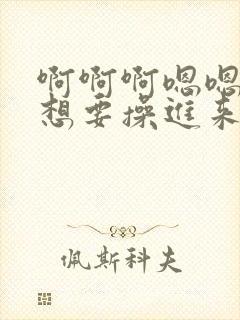 啊啊啊嗯嗯
想要操進來
佩斯科夫